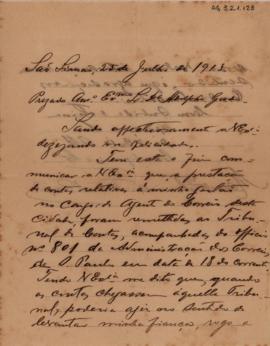 AG 3.2.1.123
São Simão, 20 de Julho de 1913.
Prezado Amº Exº Sr. Dr. Adolpho Gordo
Saudo affectuosamente a V.Exª
dezejando-vos felicidades.
Tem esta o fim com-
municar a V.Exª que a prestação
de contas, relativas á minha gestão
no Cargo de Agente do Correio desta
Cidade, foram remettidas ao Tribu-
nal de Contas, acompanhadas do officio
nº 801 da Administração dos Correios
de S. Paulo em data de 18 do corrente.
Tendo V.Exª me dito que, quando
as contas chegassem áquelle Tribu-
nal, poderia agir no sentido de
levantar minha fiança, rogo a